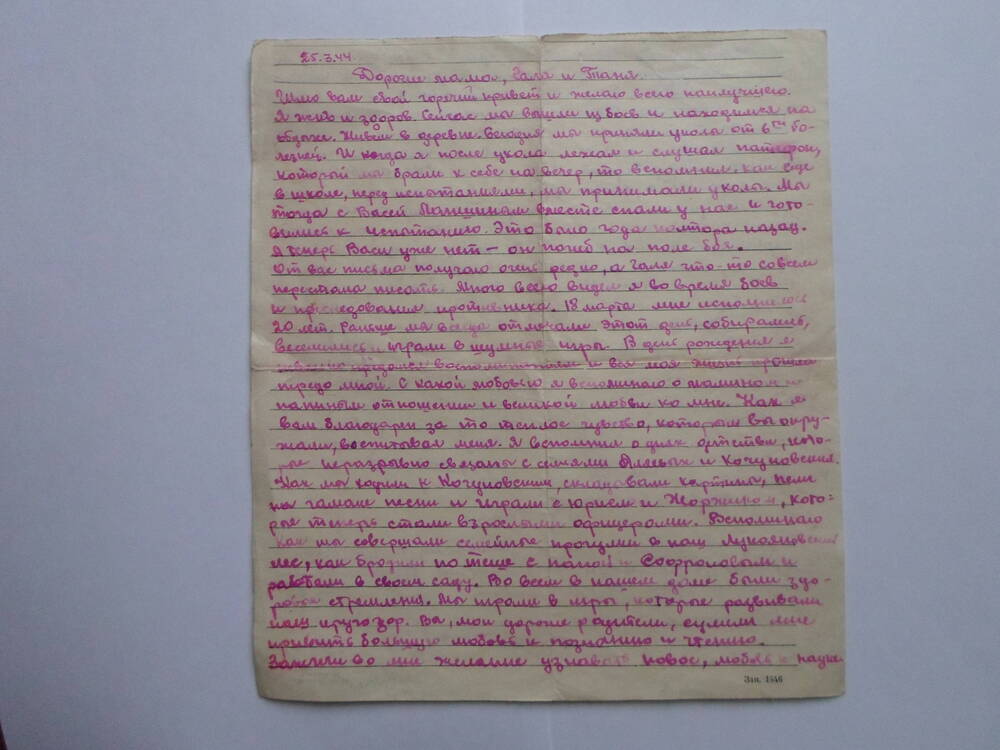 25.3.44.
Дорогие мама, Галя и Таня.
Шлю вам свой горячий привет и желаю всего наилучшего.
Я жив и здоров. Сейчас мы вышли из боев и находимся на
отдыхе. Живём в деревне. Сегодня мы приняли укола от 6ти бо-
лезней. И когда я после укола лежал и слушал патефон,
который мы брали к себе на вечер, то вспомнил, как еще
в школе, перед испытаниями, мы принимали уколы. Мы
тогда с Васей вместе спали у нас и гото-
вились к испытанию. Это было года полтора назад.
А теперь Васи уже нет – он погиб на поле боя.
От вас письма получаю очень редко, а Галя что-то совсем
перестала писать. Много всего видел я во время боев
и преследования противника. 18 марта мне исполнилось
20 лет. Раньше мы всегда отмечали этот день, собирались,
веселились и играли в шумные игры. В день рождения я
предался воспоминаниям и вся моя жизнь прошла
передо мной. С какой любовью я вспоминаю о мамином и
папином отношении и великой любви ко мне. Как я
вам благодарен за то теплое чувство, которым вы окру-
жали, воспитывая меня. Я вспомнил о днях детства, кото-
рые неразрывно связаны с семьями и Кочуновских.
Как мы ходили к Кочуновским, складывали картины, пели
на гамаке песни и играли с Юрисем и Жоржиком, кото-
рые теперь стали взрослыми офицерами. Вспоминаю
как мы совершали семейные прогулки в наш Лукояновский
лес, как бродили по Теше с папой и Софроновым и
работали в своем саду. Во всем в нашем доме были здо-
ровые стремления. Мы играли в игры, которые развивали
наш кругозор. Вы, мои дорогие родители, сумели мне
привить большую любовь к познанию и чтению.
Зажгли во мне желание узнавать новое, любовь к науке.
Зак. 1846